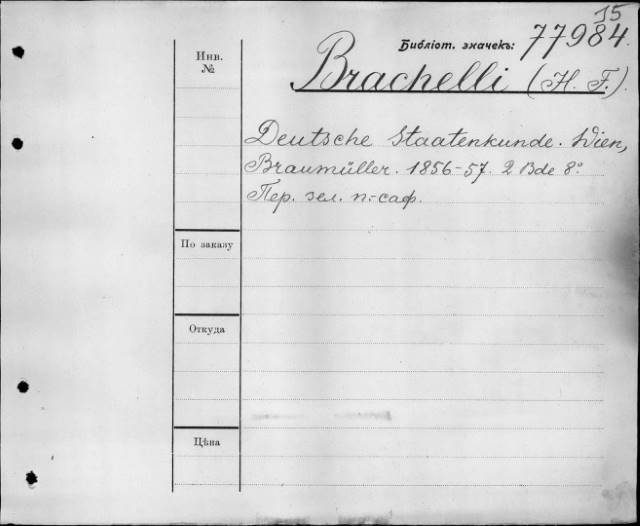 15
Библіот. значекъ: 77984.
Инв.
№
Brachelli (H. F.).
Deutsche Staatenkunde. Wien,
Braumüller. 1856-57. 2 Bde 8º
Пер. зел. п.-саф.
По заказу
Откуда
Цѣна